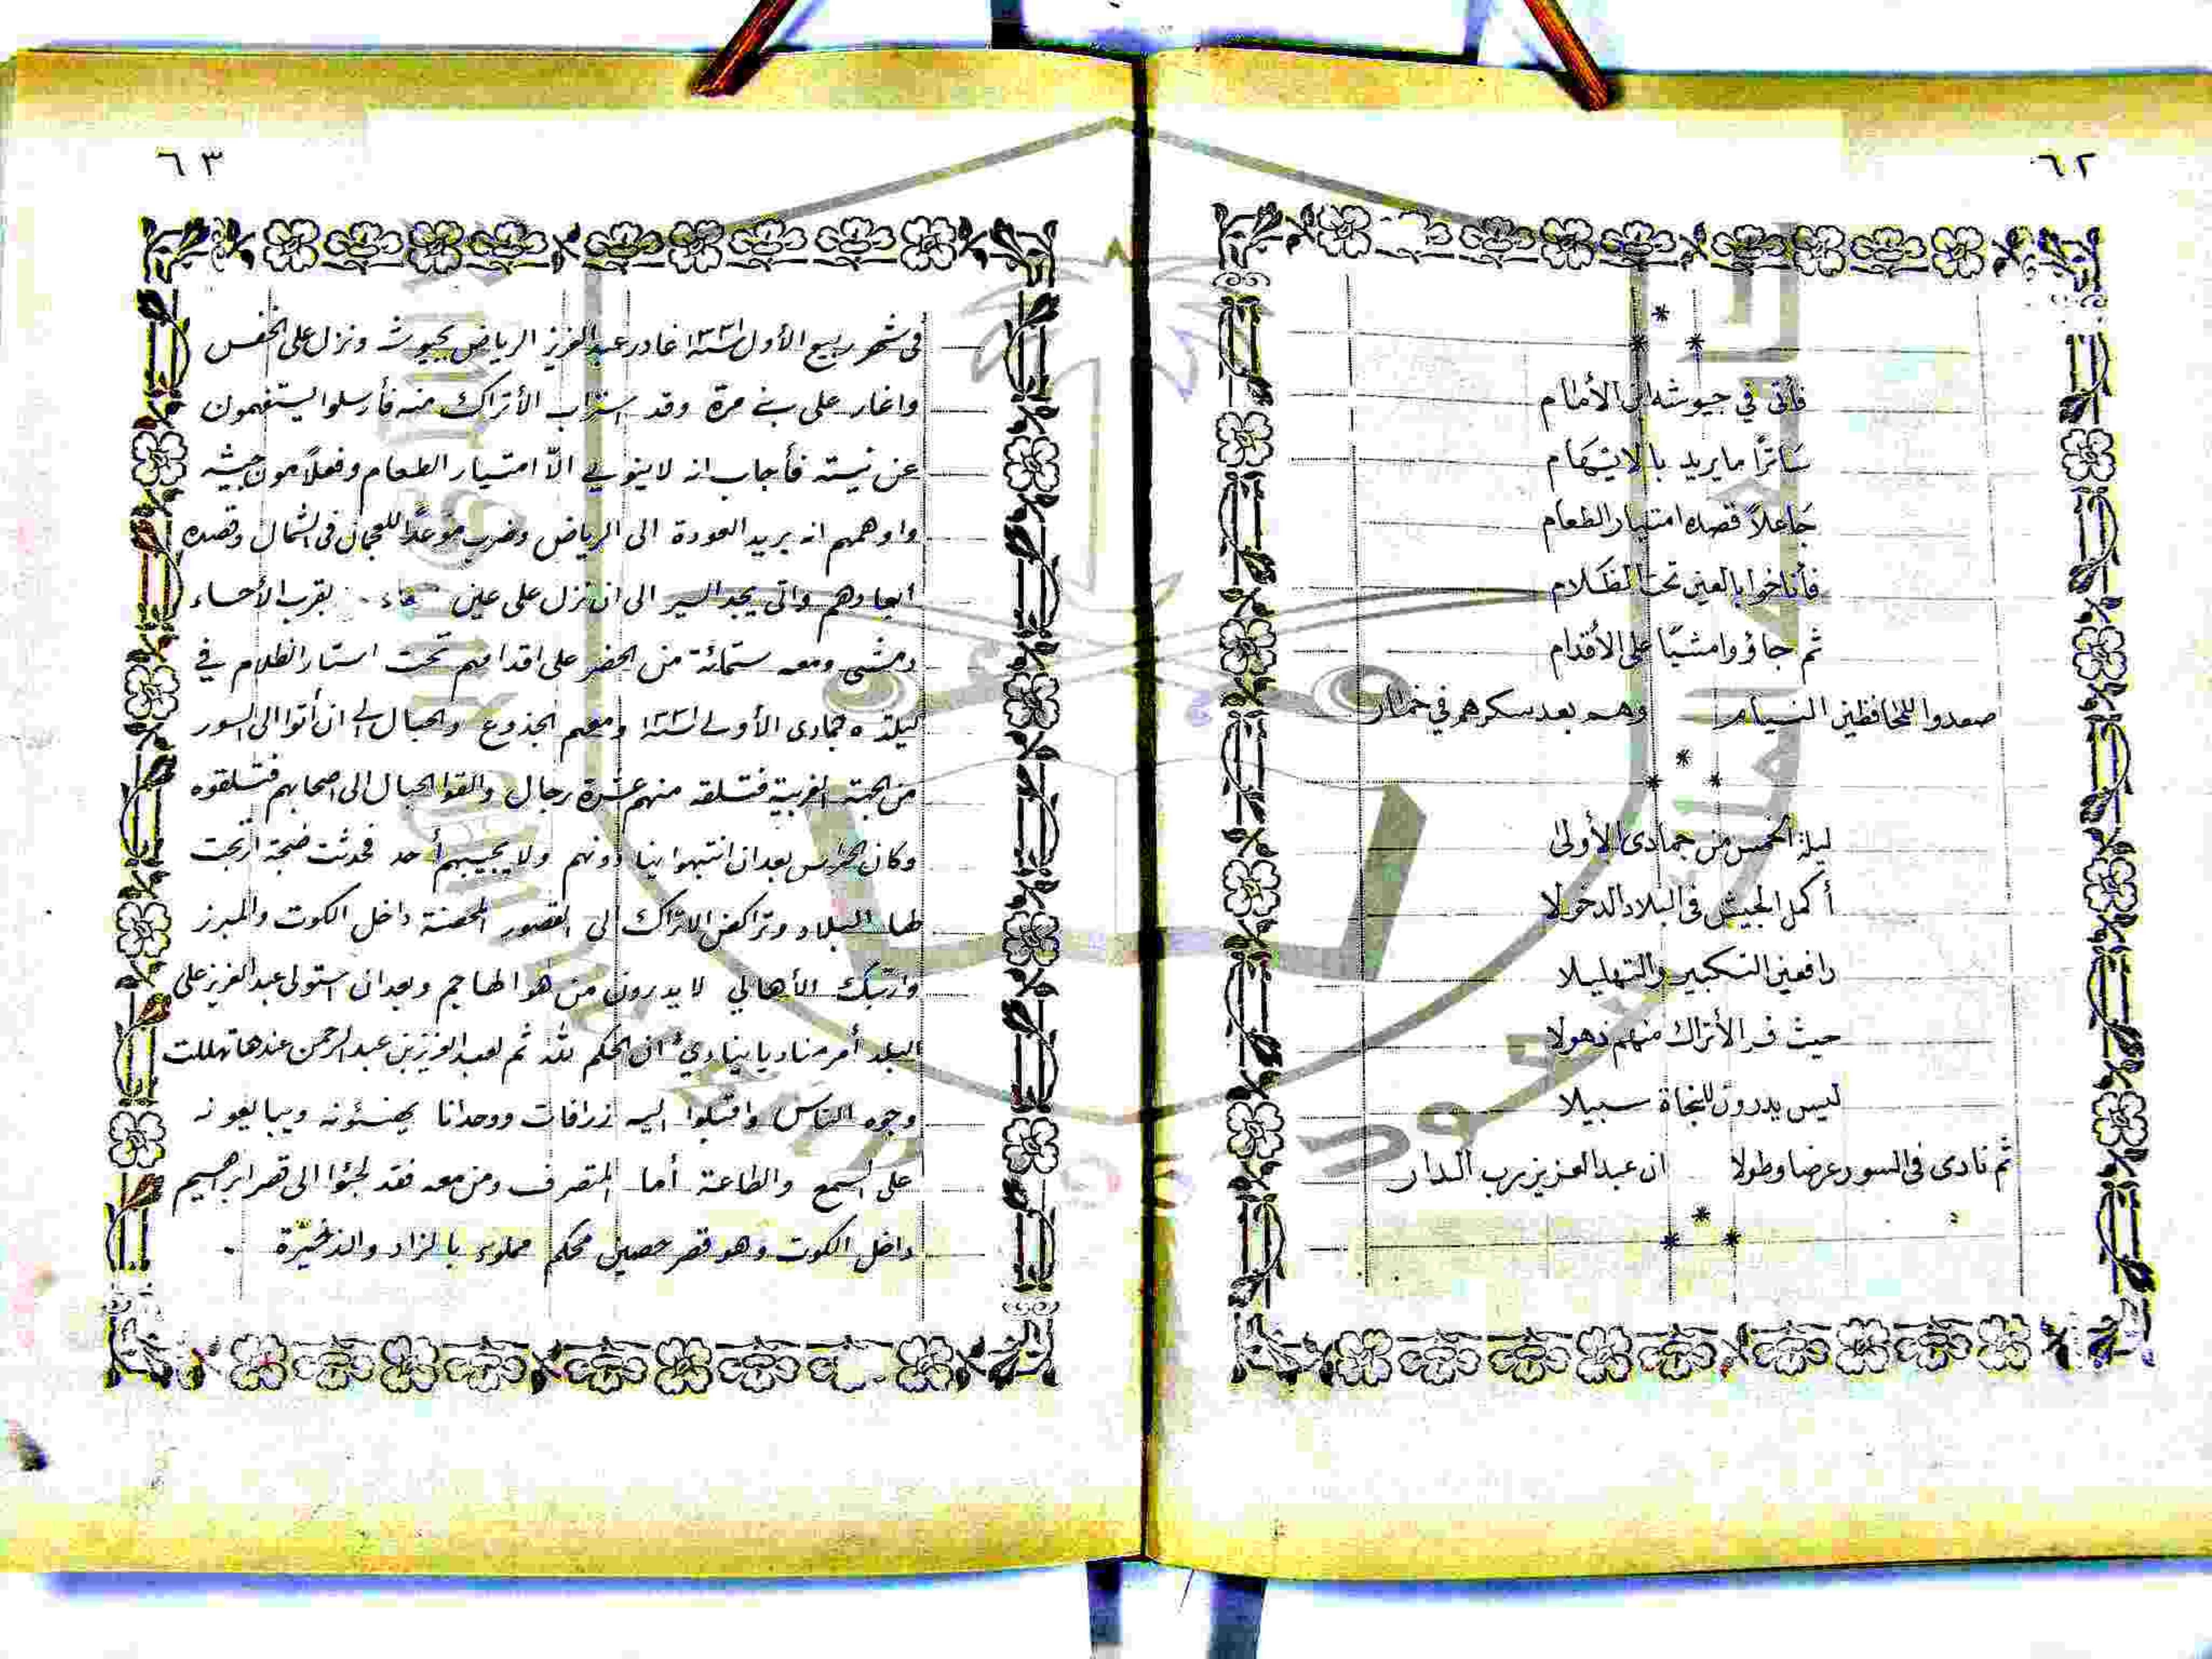 ٦٢
*
* *
فأتى في جيوشه ابن الأمام
ساترًا ما يريد بالايهام
جاعلاً قصده امتيار الطعام
فأناخوا بالعين تحت الظلام
ثم جاؤوا مشيًا على الأقدام
صعدوا للمحافظين وهم بعد سكرهم في خمار
*
* *
ليلة الخمس من جمادى الأولى
أكمل الجيش في البلاد الدخولا
رافعين التكبير والتهليلا
حيث فر الأتراك منهم ذهولا
ليس يدرون للنجاة سبيلا
ثم نادى في السور عرضا وطولا ان عبد العزيز رب الدار
*
* *
٦٣
في شهر ربيع الأول سنة ١٣٣١ غادر عبد العزيز الرياض بجيوشه ونزل على الخفس
واغار على بني مرة وقد استراب الأتراك منه فأرسلوا يستفهمون
عن نيته فأجاب انه لا ينوي الاّ امتيار الطعام وفعلاً مون جيشه
واوهمهم انه يريد العودة الى الرياض وضرب موعدًا للعجمان في الشمال وقصده
ابعادهم واتى يجد السير الى ان نزل على عين بقرب الأحساء
ومشى ومعه ستمائة من الحضر على اقدامهم تحت استار الظلام في
ليلة ٥ جمادى الأولى سنة ١٣٣١ ومعهم الجذوع والحبال الى ان أتوا الى السور
من الجهة الغربية فتسلقه منهم عشرة رجال والقوا الحبال الى اصحابهم فتسلقوه
وكان الحراس بعد ان انتبهوا ينادونهم ولا يجيبهم أحد فحدثت ضجة ارتجت
لها البلاد وتراكض الاتراك الى القصور المحصنة داخل الكوت والمبرز
وارتبك الأهالي لا يدرون من هو المهاجم وبعد ان استولى عبد العزيز على
البلد أمر مناديا ينادي ان الحكم لله ثم لعبد العزيز بن عبد الرحمن عندها تهللت
وجوه الناس واقبلوا اليه زرافات ووحدانا يهنئونه ويبايعونه
على السمع والطاعة أما المتصرف ومن معه فقد لجئوا الى قصر ابراهيم
داخل الكوت وهو قصر حصين محكم مملوء بالزاد والذخيرة .